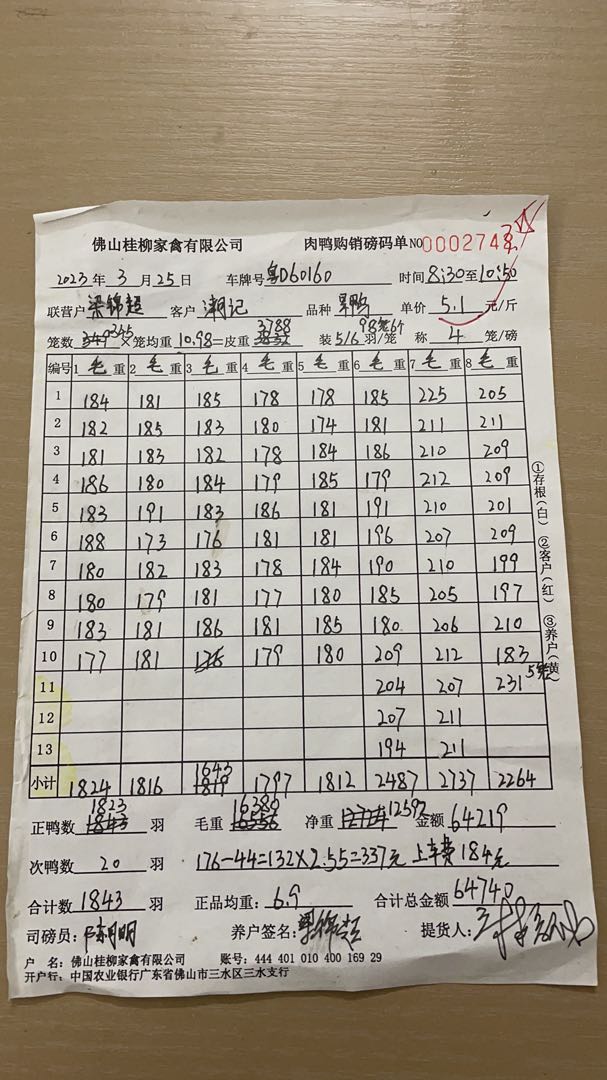 佛山桂柳家禽有限公司 肉鸭购销磅码单 NO 000274
2023 年 3 月 25 日 车牌号 粤D60160 时间 8:30 至 10:50
联营户 梁锦超 客户 潮记 品种 单价 5.1 元/斤
笼数 349 345 × 笼均重 10.98 = 皮重 3788 装 5/6 羽/笼 98笼6个 称 4 笼/磅
编号 1 毛 重 2 毛 重 3 毛 重 4 毛 重 5 毛 重 6 毛 重 7 毛 重 8 毛 重
1 184 181 185 178 178 185 225 205
2 182 185 183 180 174 181 211 211
3 181 183 182 178 184 186 210 209
4 186 180 184 179 185 179 212 209
5 183 191 183 186 181 191 210 201
6 188 173 176 181 181 196 207 209
7 180 182 183 178 184 190 210 199
8 180 179 181 177 180 185 205 197
9 183 181 186 181 185 180 206 210
10 177 181 179 180 209 212 183
11 204 207 231 5笼
12 207 211
13 194 211
小计 1824 1816 1643 1819 1797 1812 2487 2737 2264
①存根(白) ②客户(红) ③养户(黄)
正鸭数 1823 1843 羽 毛重 16380 16556 净重 12592 金额 64219
次鸭数 20 羽 176-44=132×2.55=337元 上车费184元
合计数 1843 羽 正品均重: 6.9 合计总金额 64740
司磅员: 陈明 养户签名: 梁锦超 提货人:
户 名: 佛山桂柳家禽有限公司 账号: 444 401 010 400 169 29
开户行: 中国农业银行广东省佛山市三水区三水支行